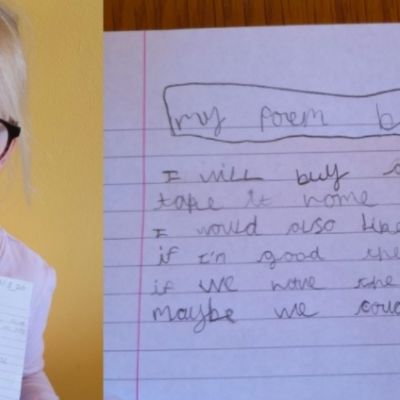 my poem b
I will buy a
take it home
I would also like
if I'm good the
if we have the
maybe we cou